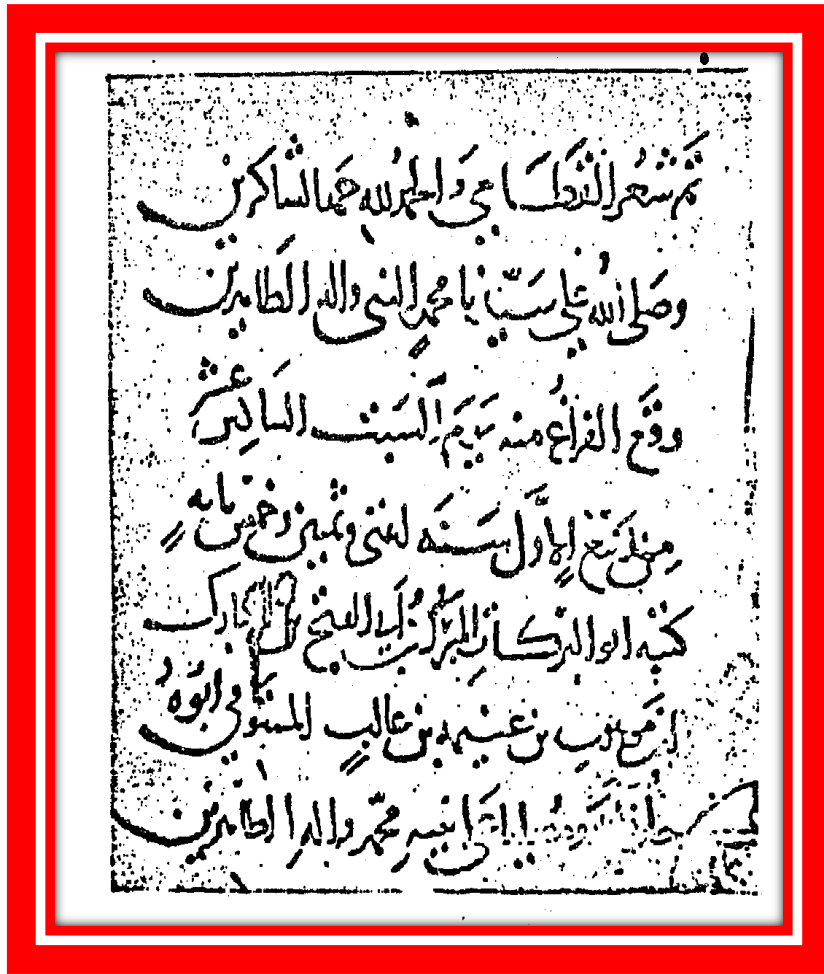 تم شعر القطامي والحمد لله حمد الشاكرين
وصلى الله على سيدنا محمد النبي واله الطاهرين
وقع الفراغ منه يوم السبت السادس عشر
من ربيع الاول سنة وخمس مايه
كتبه ابو البركات بن ابي الفتح بن المبارك
ابن موهوب بن غنيمة بن غالب المستوفي
محمد واله الطاهرين